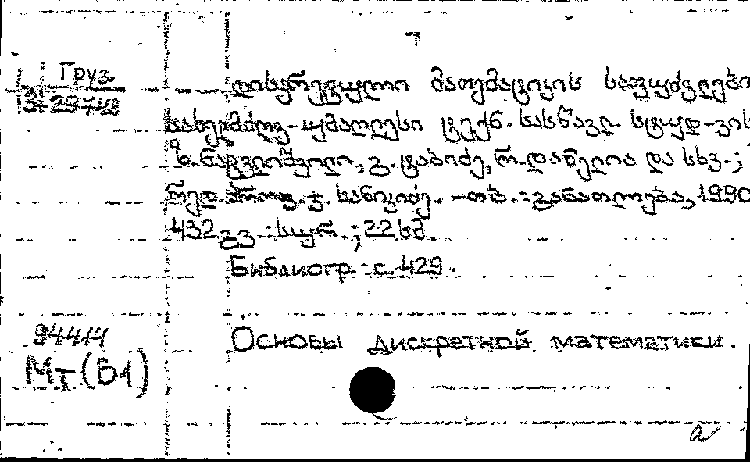 Груз
3-29748
დისკრეტული მათემატიკის საფუძვლები
სახელმძღვ. უმაღლესი ტექნ. სასწავლ. სტუდ-ვის
ნ. ნატვლიშვილი, გ. ტაბიძე, რ. დანელია და სხვ.;
რედ. პროფ. ჯ. სანიკიძე. -თბ. : განათლება, 1990
432გვ. :სურ. ; 22სმ.
Библиогр.: с. 429.
94414
Мт(Б1)
Основы дискретной математики.
а